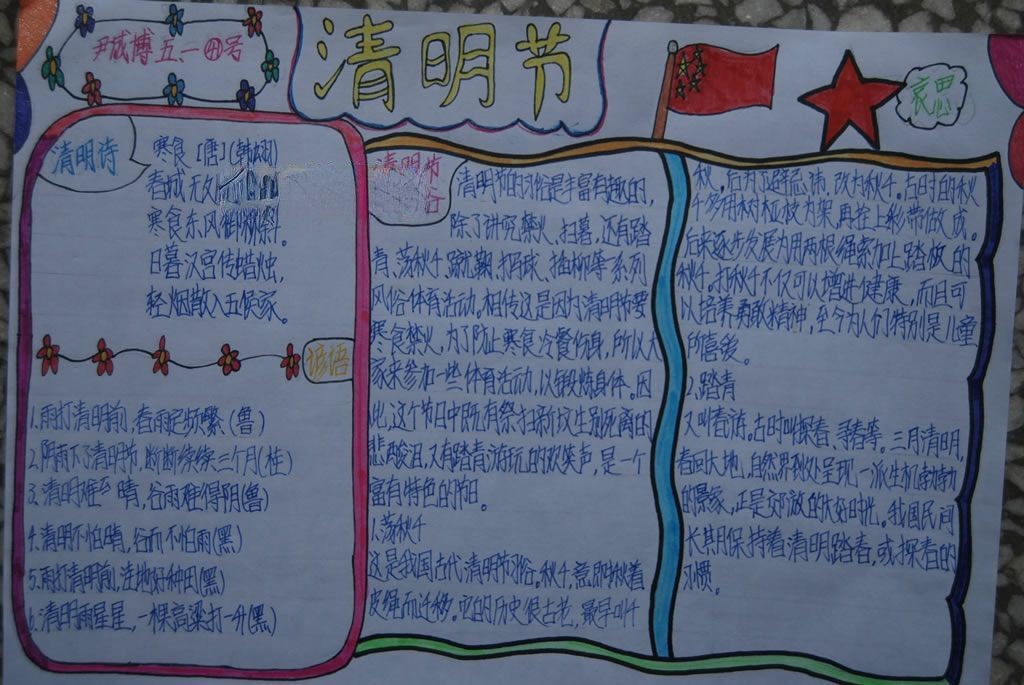 尹成博五、一④号
清明节
哀思
清明诗
寒食[唐](韩翃)
春城无
寒食东风御柳斜。
日暮汉宫传蜡烛,
轻烟散入五侯家。
谚语
1.雨打清明前,春雨定频繁(鲁)
2.阴雨下了清明节,断断续续三个月(桂)
3.清明难得晴,谷雨难得阴(鲁)
4.清明不怕晴,谷雨不怕雨(黑)
5.雨打清明前,洼地好种田(黑)
6.清明雨星星,一棵高粱打一升(黑)
清明节
清明节的习俗是丰富有趣的,
除了讲究禁火、扫墓,还有踏
青、荡秋千、蹴鞠、打马球、插柳等一系列
风俗体育活动。相传这是因为清明节要
寒食禁火,为了防止寒食冷餐伤身,所以大
家来参加一些体育活动,以锻炼身体。因
此,这个节日中既有祭扫新坟生别死离的
悲酸泪,又有踏青游玩的欢笑声,是一个
富有特色的节日。
1.荡秋千
这是我国古代清明节习俗。秋千,意即揪着
皮绳而迁移。它的历史很古老,最早叫千
秋。后为了避忌讳,改为秋千。古时的秋
千多用树桠枝为架,再拴上彩带做成。
后来逐步发展为用两根绳索加上踏板的
秋千。打秋千不仅可以增进健康,而且可
以培养勇敢精神,至今为人们特别是儿童
所喜爱。
2.踏青
又叫春游。古时叫探春、寻春等。三月清明,
春回大地,自然界到处呈现一派生机勃勃
的景象,正是郊游的大好时光。我国民间
长期保持着清明踏青,或探春的
习惯。